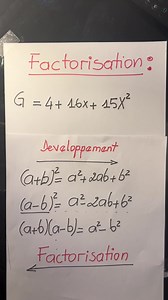 Factorisation:
G = 4 + 16x + 15x²
Developpement
(a+b)² = a² + 2ab + b²
(a-b)² = a² - 2ab + b²
(a+b)(a-b) = a² - b²
Factorisation